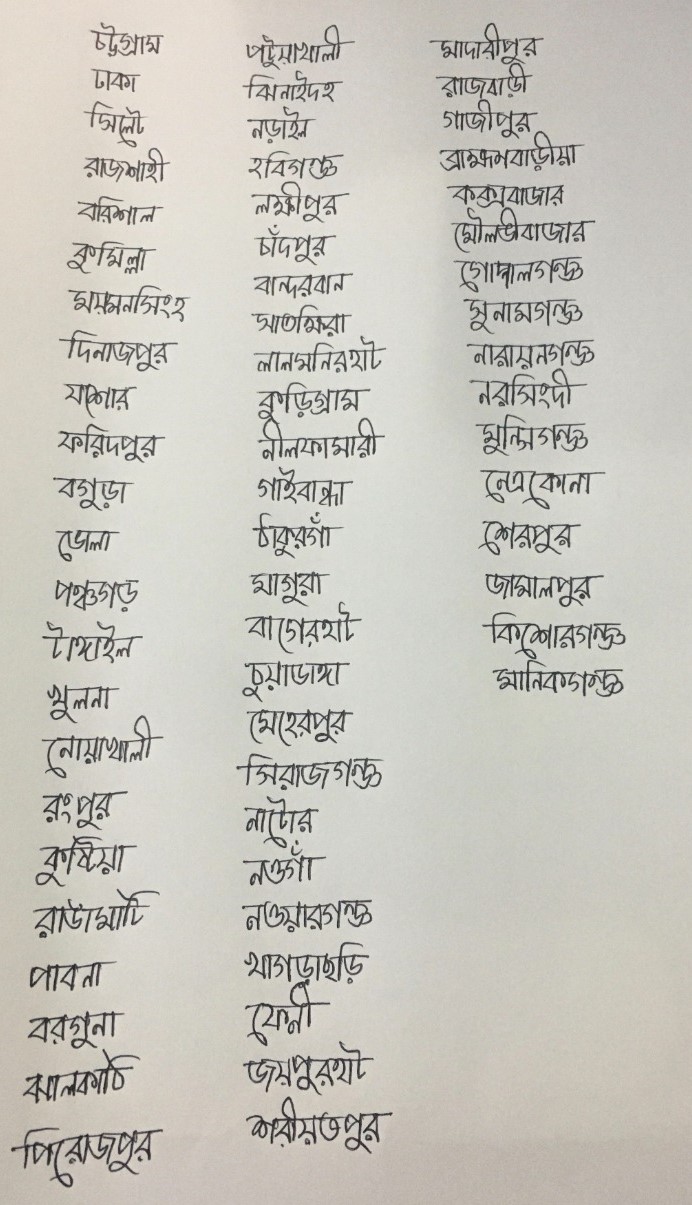 চট্টগ্রাম
ঢাকা
সিলেট
রাজশাহী
বরিশাল
কুমিল্লা
ময়মনসিংহ
দিনাজপুর
যশোর
ফরিদপুর
বগুড়া
ভোলা
পঞ্চগড়
টাঙ্গাইল
খুলনা
নোয়াখালী
রংপুর
কুষ্টিয়া
রাঙামাটি
পাবনা
বরগুনা
ঝালকাঠি
পিরোজপুর
পটুয়াখালী
ঝিনাইদহ
নড়াইল
হবিগঞ্জ
লক্ষীপুর
চাঁদপুর
বান্দরবান
সাতক্ষিরা
লালমনিরহাট
কুড়িগ্রাম
নীলফামারী
গাইবান্ধা
ঠাকুরগাঁ
মাগুরা
বাগেরহাট
চুয়াডাঙ্গা
মেহেরপুর
সিরাজগঞ্জ
নাটোর
নওগাঁ
নওয়ারগঞ্জ
খাগড়াছড়ি
ফেনী
জয়পুরহাট
শরীয়তপুর
মাদারীপুর
রাজবাড়ী
গাজীপুর
ব্রাহ্মণবাড়ীয়া
কক্সবাজার
মৌলভীবাজার
গোপালগঞ্জ
সুনামগঞ্জ
নারায়নগঞ্জ
নরসিংদী
মুন্সিগঞ্জ
নেত্রকোনা
শেরপুর
জামালপুর
কিশোরগঞ্জ
মানিকগঞ্জ